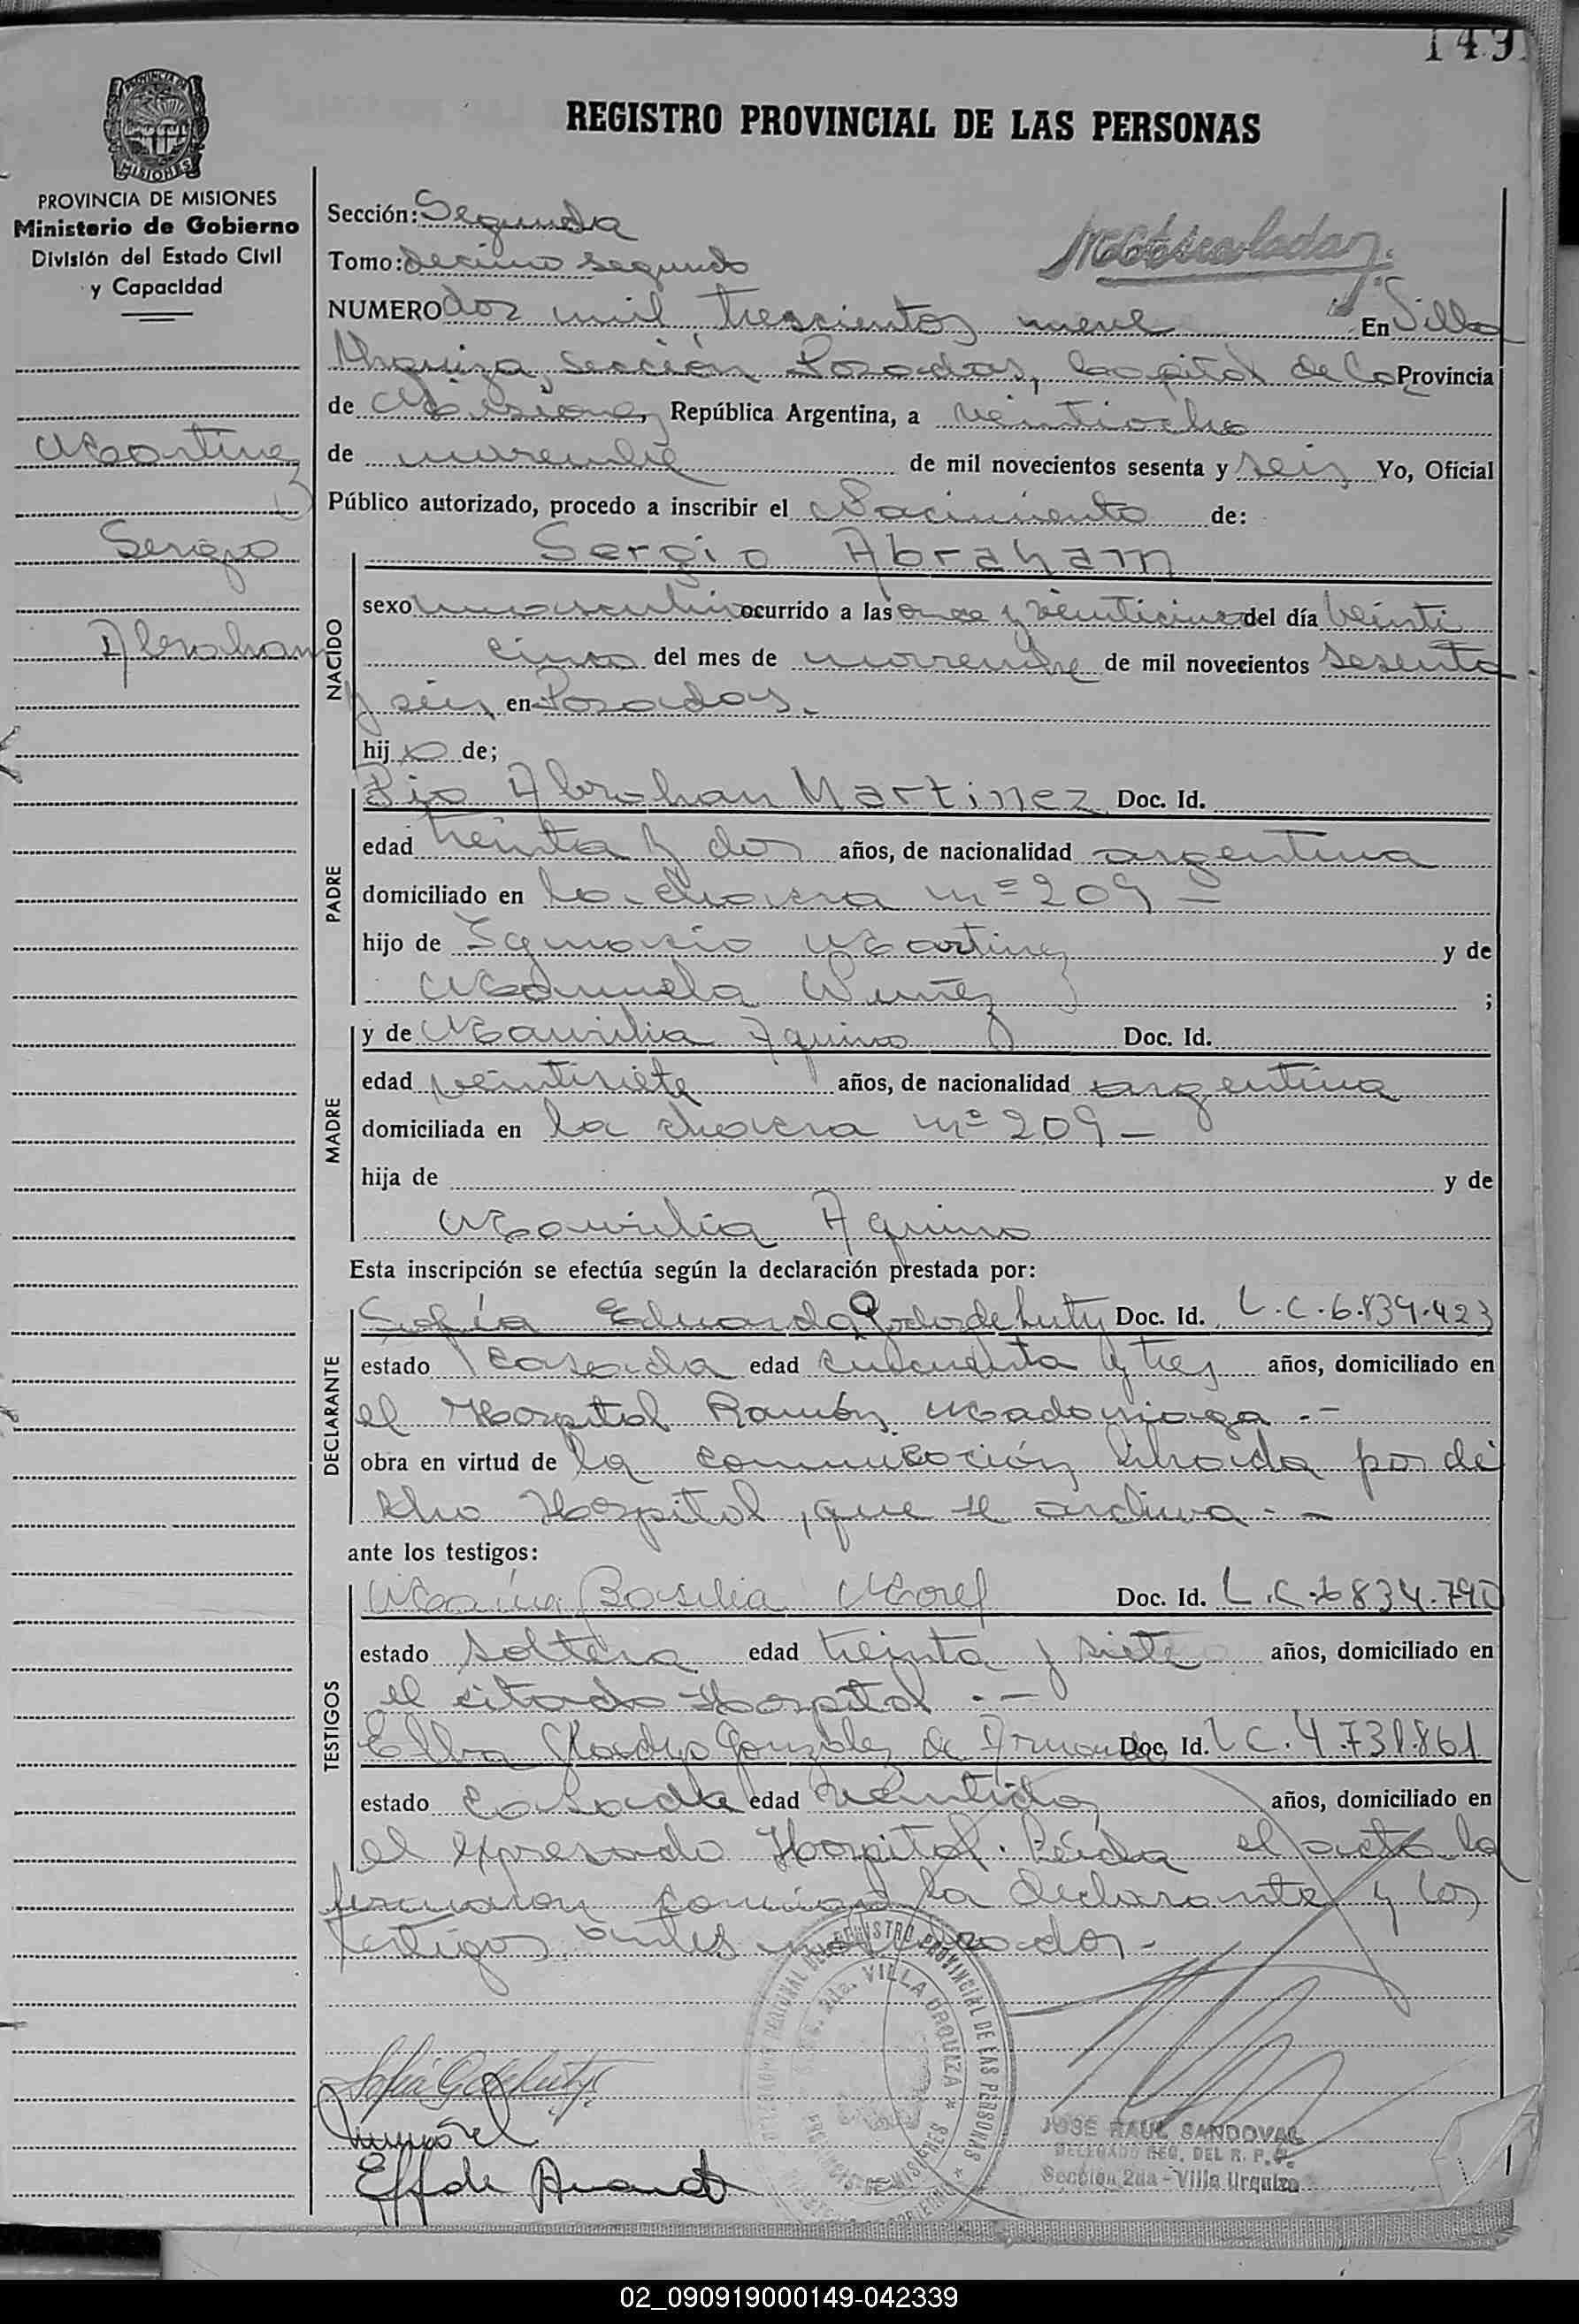 149
REGISTRO PROVINCIAL DE LAS PERSONAS
MISIONES
PROVINCIA DE MISIONES
Ministerio de Gobierno
División del Estado Civil
y Capacidad
Martinez
Sergio
Abrahan
Sección: Segunda
Tomo: decimo segundo
NUMERO dos mil trescientos nueve En Villa
Urquiza, sección Posadas, Capital de la Provincia
de Misiones República Argentina, a veintiocho
de noviembre de mil novecientos sesenta y seis Yo, Oficial
Público autorizado, procedo a inscribir el Nacimiento de:
Sergio Abraham
NACIDO
sexo masculino ocurrido a las once y veinticinco del día veinti
cinco del mes de noviembre de mil novecientos sesenta
y seis en Posadas.
hijo de;
PADRE
Pio Abrahan Martinez Doc. Id.
edad treinta y dos años, de nacionalidad argentina
domiciliado en la chacra nº 209 —
hijo de Ignacio Martinez y de
Manuela Nuñez ;
MADRE
y de Maurilia Aquino Doc. Id.
edad veintisiete años, de nacionalidad argentina
domiciliada en la chacra nº 209 —
hija de y de
Maurilia Aquino
Esta inscripción se efectúa según la declaración prestada por:
DECLARANTE
Sofía Eduarda de Doc. Id. L.C. 6.839.423
estado casada edad cincuenta y tres años, domiciliado en
el Hospital Ramón Madariaga.—
obra en virtud de la comunicación librada por di
cho Hospital, que se archiva.—
ante los testigos:
TESTIGOS
María Basilia Morel Doc. Id. L.C. 6834.790
estado soltera edad treinta y siete años, domiciliado en
el citado Hospital.—
Elba Gladys González de Doc. Id. L C. 4.731.861
estado casada edad veintidos años, domiciliado en
el expresado Hospital. Leída el acta la
firmaron conmigo la declarante y los
testigos antes nombrados.—
REGISTRO PROVINCIAL DE LAS PERSONAS
2da. VILLA URQUIZA
JOSE RAUL SANDOVAL
DELEGADO REG. DEL R. P. P.
Sección 2da - Villa Urquiza
02_090919000149-042339